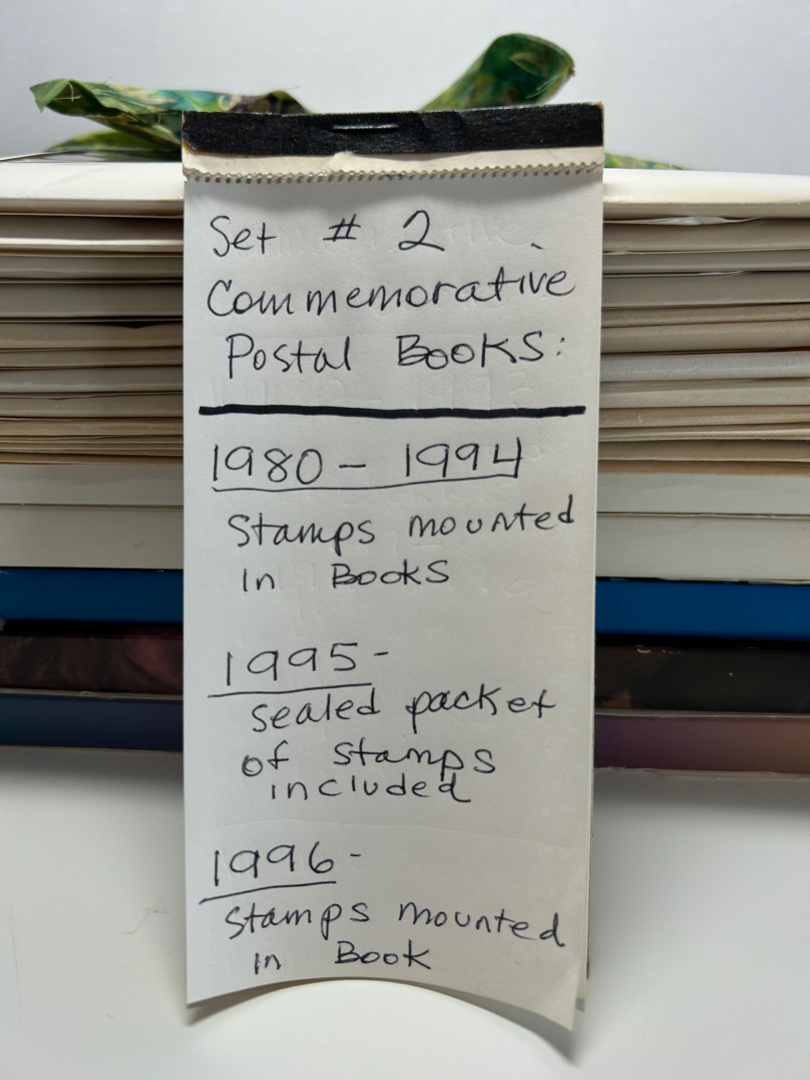 Set # 2
Commemorative
Postal Books:
1980 - 1994
Stamps mounted
in Books
1995 -
sealed packet
of stamps
included
1996 -
Stamps mounted
in Book